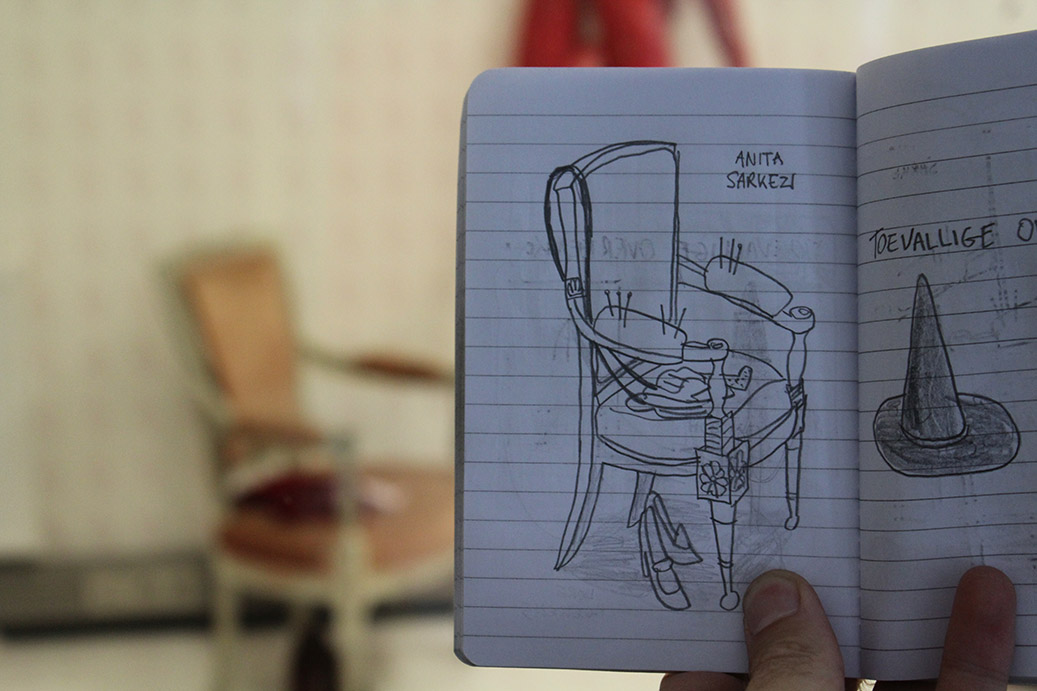 ANITA
SARKEZI
TOEVALLIGE